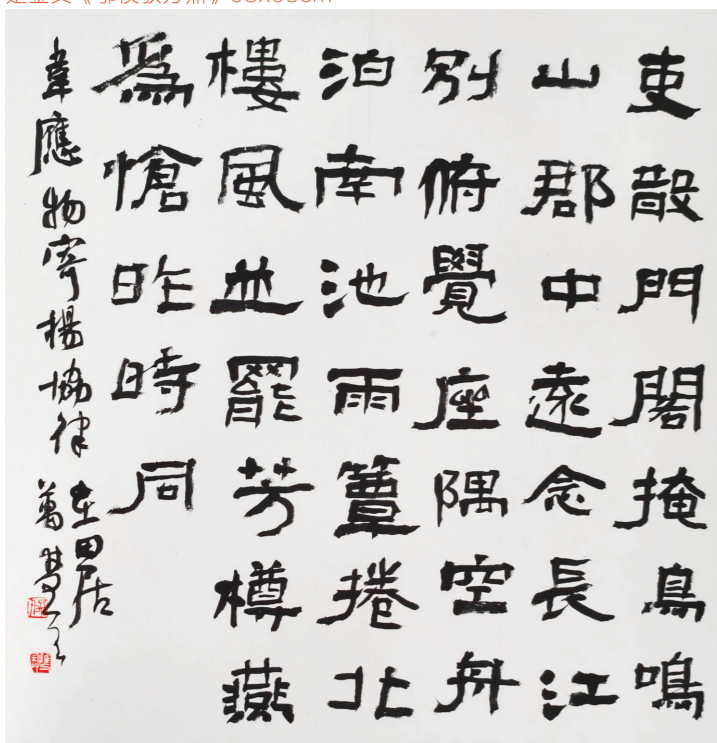 吏散門閣掩鳥鳴
山郡中遠念長江
別俯覺座隅空舟
泊南池雨簟捲北
樓風並罷芳樽燕
爲愴昨時同
韋應物寄楊協律
在田居